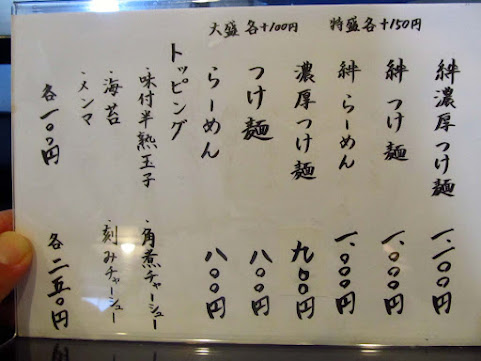 大盛 各+100円　特盛 各+150円
絆濃厚つけ麺　一、一〇〇円
絆つけ麺　一、〇〇〇円
絆らーめん　一、〇〇〇円
濃厚つけ麺　九〇〇円
つけ麺　八〇〇円
らーめん　八〇〇円
トッピング
・味付半熟玉子　・角煮チャーシュー
・海苔　・刻みチャーシュー
・メンマ
各一〇〇円　各二五〇円